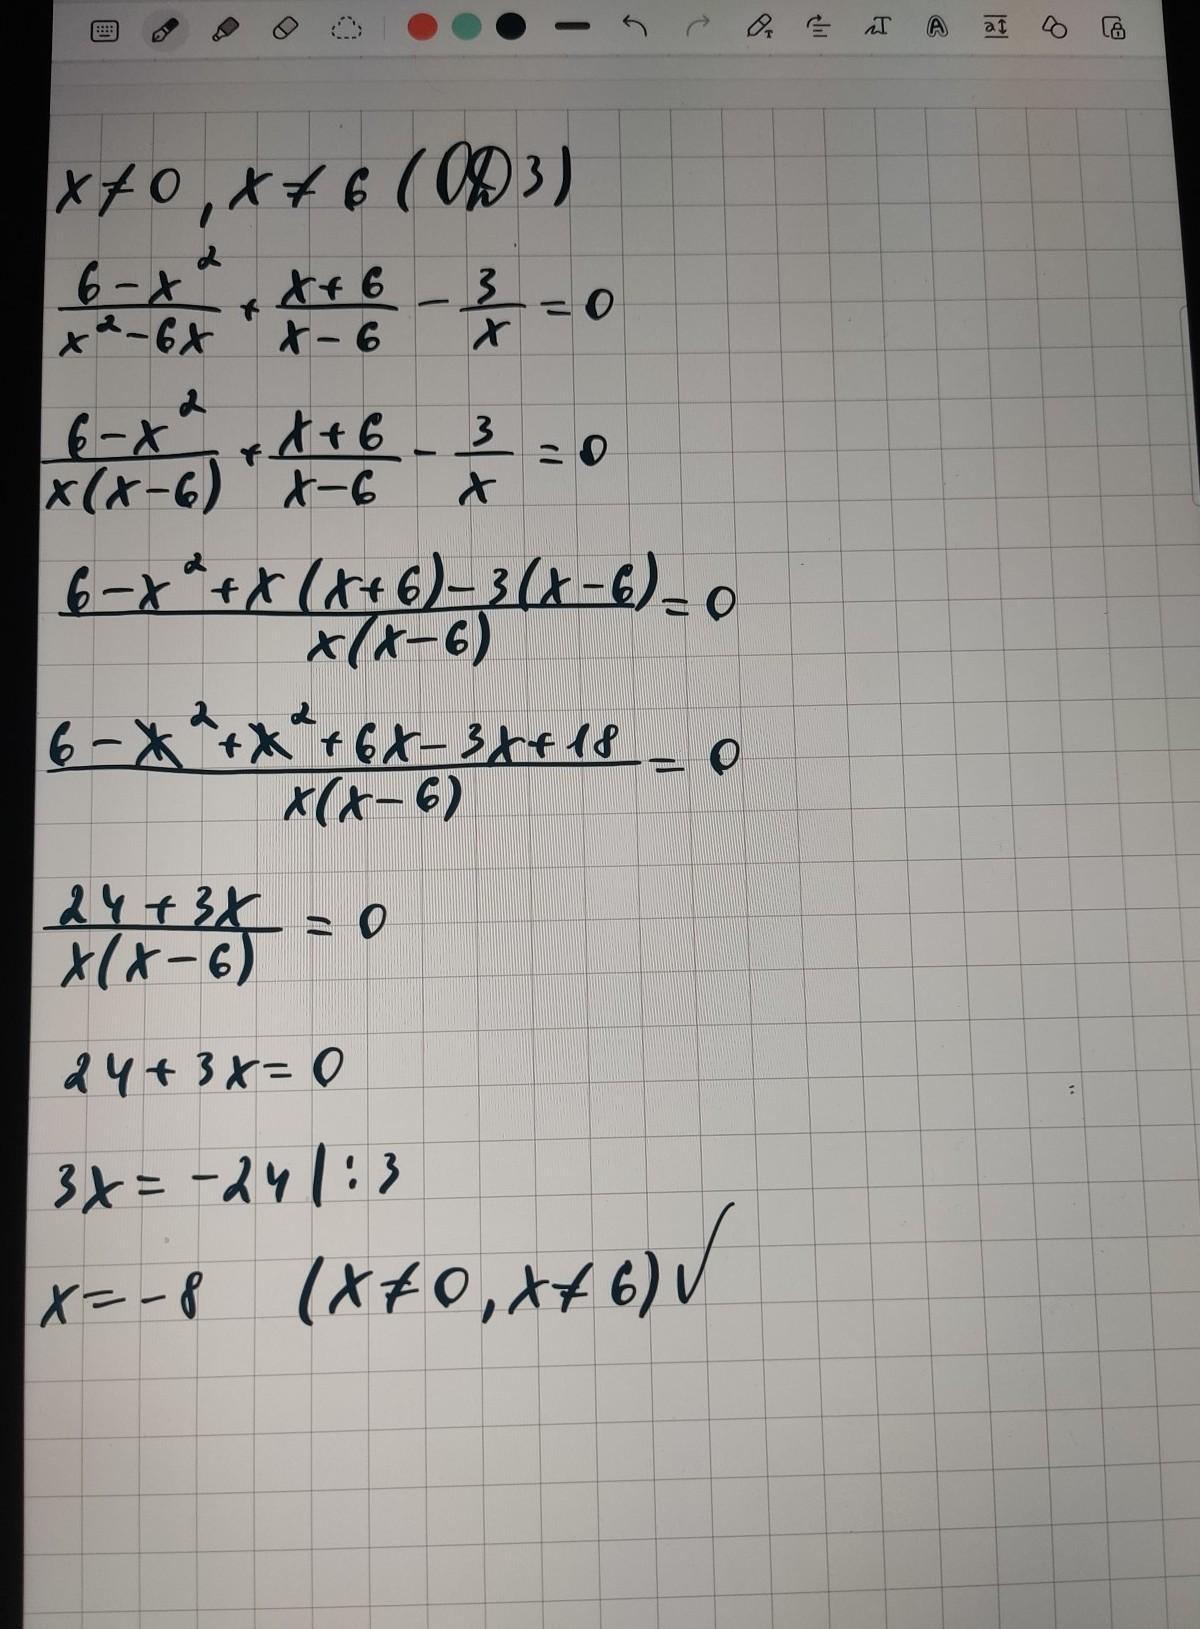 x ≠ 0, x ≠ 6 (ОДЗ)
(6 - x²)/(x² - 6x) + (x + 6)/(x - 6) - 3/x = 0
(6 - x²)/(x(x - 6)) + (x + 6)/(x - 6) - 3/x = 0
(6 - x² + x(x + 6) - 3(x - 6))/(x(x - 6)) = 0
(6 - x² + x² + 6x - 3x + 18)/(x(x - 6)) = 0
(24 + 3x)/(x(x - 6)) = 0
24 + 3x = 0
3x = -24 | : 3
x = -8 (x ≠ 0, x ≠ 6) ✓